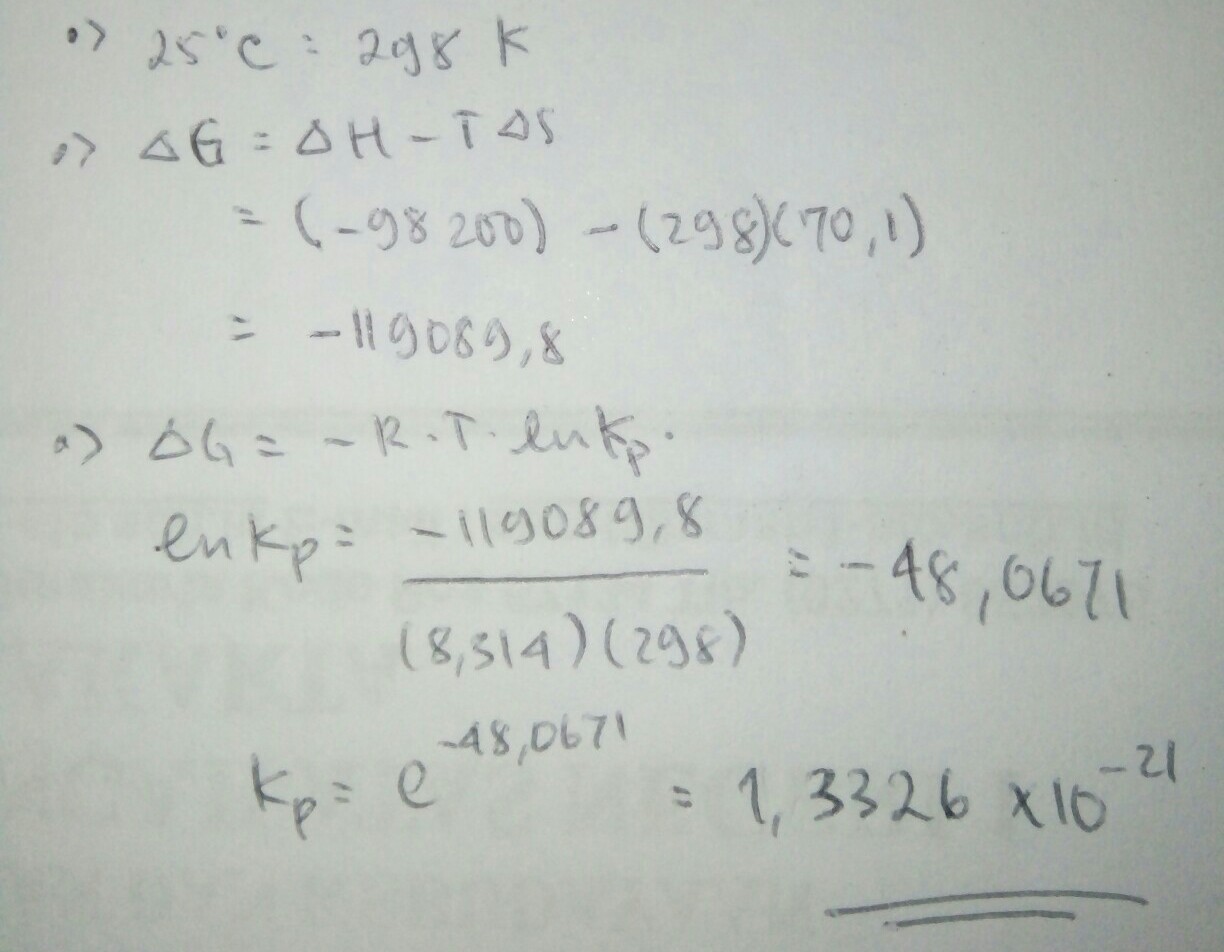 •> 25°C = 298 K
•> ΔG = ΔH - T ΔS
= (-98 200) - (298)(70,1)
= -119089,8
•> ΔG = - R . T . ln Kp .
ln Kp = -119089,8 / (8,314)(298) = -48,0671
Kp = e^-48,0671 = 1,3326 x10^-21